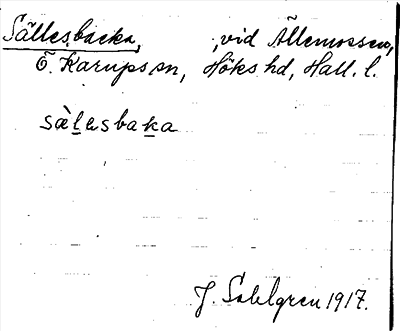 Sällesbacka, , vid Ällemossen,
Ö. Karups sn, Höks hd, Hall. l.
sæ̀lesbaka
J. Sahlgren 1917.